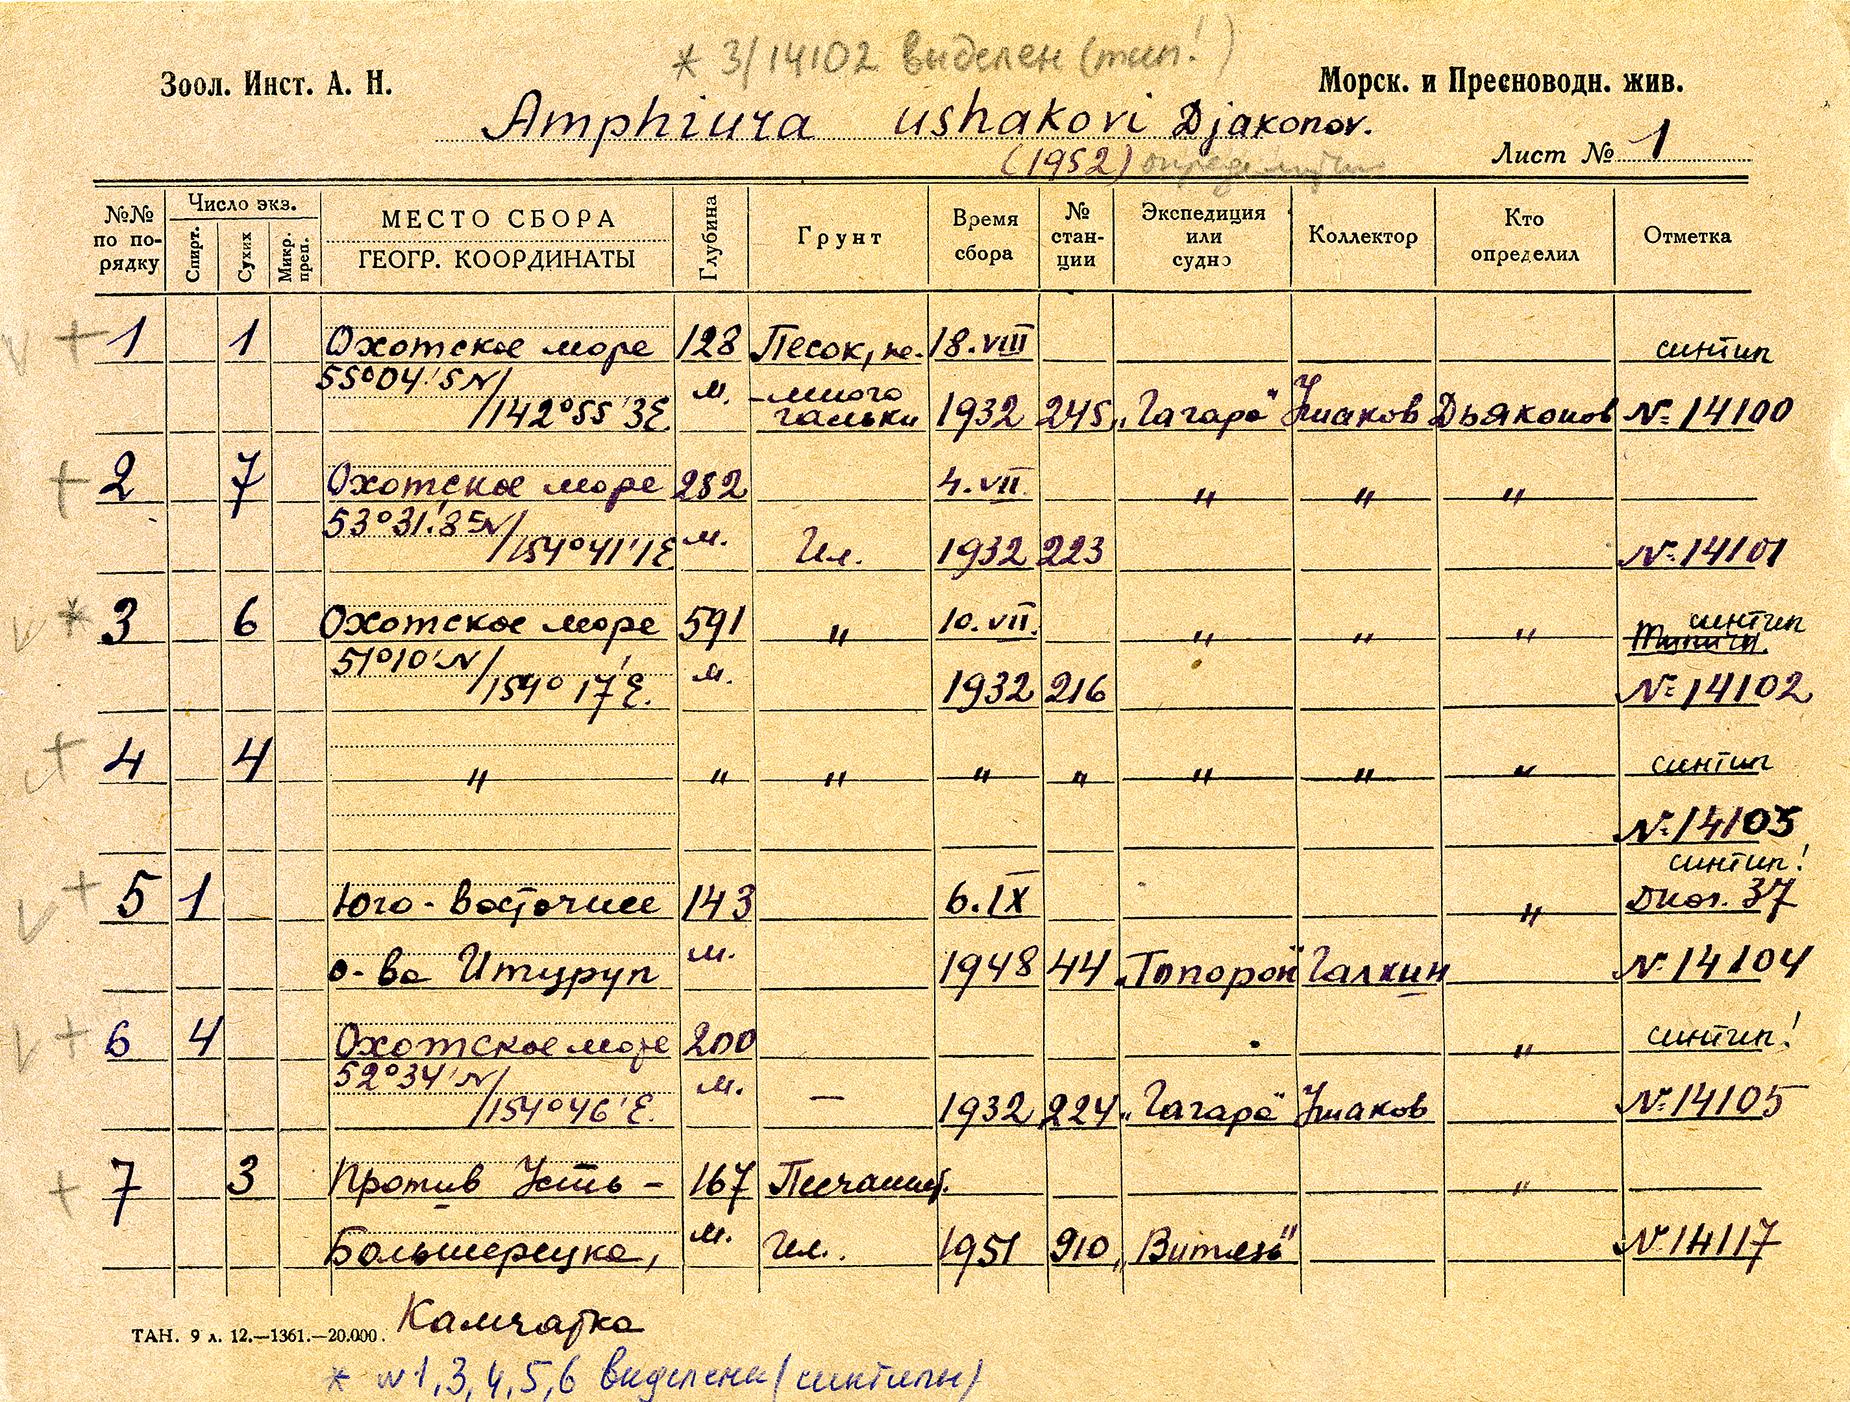 * 3/14102 выделен (тип!)
Зоол. Инст. А. Н.
Морск. и Пресноводн. жив.
Amphiura ushakovi Djakonov.
(1952)
Лист № 1
№№ по по-рядку
Число экз.
Спирт.
Сухих
Микр. преп.
МЕСТО СБОРА
ГЕОГР. КООРДИНАТЫ
Глубина
Грунт
Время сбора
№ стан-ции
Экспедиция или судно
Коллектор
Кто определил
Отметка
V + 1 1 Охотское море 128 Песок, не- 18.VIII синтип
55°04'5N/ м. -много
/142°55'3E гальки 1932 245 „Гагара" Ушаков Дьяконов № 14100
+ 2 7 Охотское море 252 4.VII " " "
53°31'.8N/ м.
/154°41'1E Ил. 1932 223 № 14101
V * 3 6 Охотское море 591 " 10.VII. " " " синтип
51°10'N/ м.
/154°17'E. 1932 216 № 14102
V + 4 4 " " " " " " " " синтип
№ 14103
V + 5 1 Юго-восточнее 143 6.IX " синтип!
37
о-ва Итуруп м. 1948 44 „Топорок" Галкин № 14104
V + 6 4 Охотское море 200 " синтип!
52°34'N/ м. —
/154°46'E. 1932 224 „Гагара" Ушаков № 14105
+ 7 3 Против Усть- 167 Песчанист. "
Большерецка, м. ил. 1951 910 „Витязь" № 14117
Камчатка
ТАН. 9 л. 12.—1361.—20.000.
* N 1,3,4,5,6 выделены (синтипы)